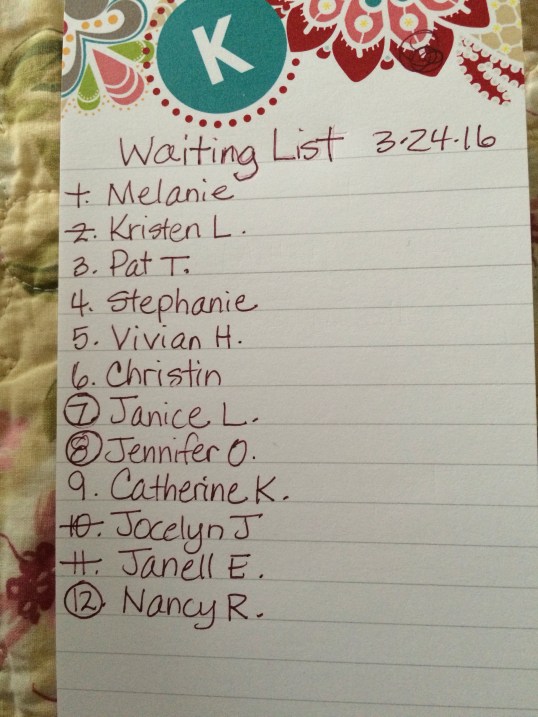 K
Waiting List 3-24-16
1. Melanie
2. Kristen L.
3. Pat T.
4. Stephanie
5. Vivian H.
6. Christin
7 Janice L.
8 Jennifer O.
9. Catherine K.
10. Jocelyn J
11. Janell E.
12. Nancy R.